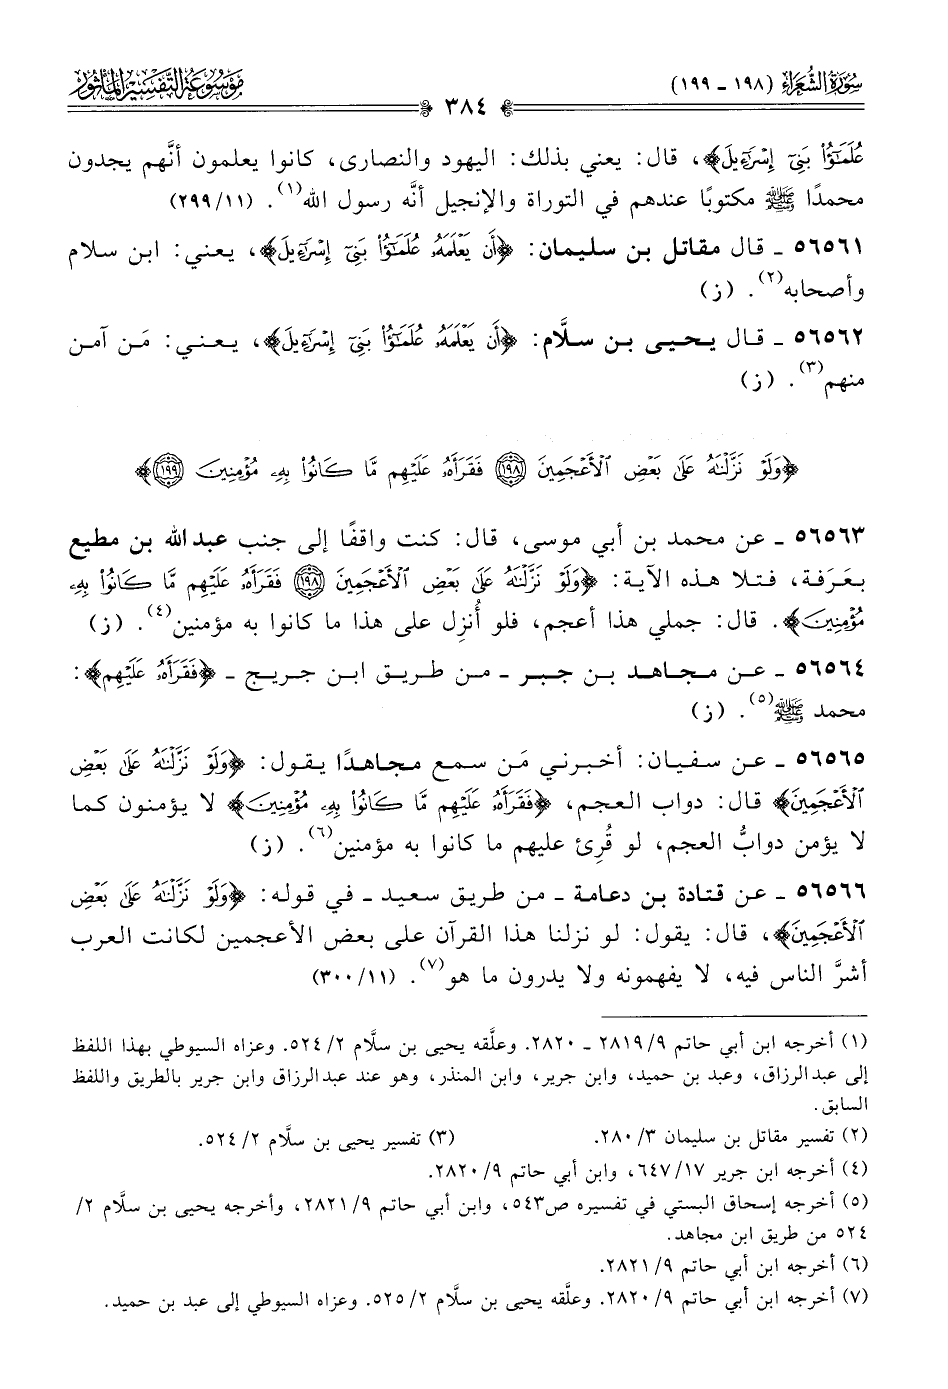 سُورَةُ الشُّعَرَاءِ (١٩٨ ـ ١٩٩)
مَوْسُوعَةُ التَّفْسِيرِ الْمَأْثُورِ
٣٨٤
عُلَمَٰٓؤُاْ بَنِيٓ إِسْرَٰٓءِيلَ﴾، قال: يعني بذلك: اليهود والنصارى، كانوا يعلمون أنَّهم يجدون
محمدًا ﷺ مكتوبًا عندهم في التوراة والإنجيل أنَّه رسول الله(١). (١١/ ٢٩٩)
٥٦٥٦١ ـ قال مقاتل بن سليمان: ﴿أَن يَعْلَمَهُۥ عُلَمَٰٓؤُاْ بَنِيٓ إِسْرَٰٓءِيلَ﴾، يعني: ابن سلام
وأصحابه(٢). (ز)
٥٦٥٦٢ ـ قال يحيى بن سلَّام: ﴿أَن يَعْلَمَهُۥ عُلَمَٰٓؤُاْ بَنِيٓ إِسْرَٰٓءِيلَ﴾، يعني: مَن آمن
منهم(٣). (ز)
﴿وَلَوْ نَزَّلْنَٰهُ عَلَىٰ بَعْضِ ٱلْأَعْجَمِينَ ١٩٨ فَقَرَأَهُۥ عَلَيْهِم مَّا كَانُواْ بِهِۦ مُؤْمِنِينَ ١٩٩﴾
٥٦٥٦٣ ـ عن محمد بن أبي موسى، قال: كنت واقفًا إلى جنب عبد الله بن مطيع
بعَرَفة، فتلا هذه الآية: ﴿وَلَوْ نَزَّلْنَٰهُ عَلَىٰ بَعْضِ ٱلْأَعْجَمِينَ ١٩٨ فَقَرَأَهُۥ عَلَيْهِم مَّا كَانُواْ بِهِۦ
مُؤْمِنِينَ﴾. قال: جملي هذا أعجم، فلو أُنزِل على هذا ما كانوا به مؤمنين(٤). (ز)
٥٦٥٦٤ ـ عن مجاهد بن جبر ـ من طريق ابن جريج ـ ﴿فَقَرَأَهُۥ عَلَيْهِم﴾:
محمد ﷺ(٥). (ز)
٥٦٥٦٥ ـ عن سفيان: أخبرني مَن سمع مجاهدًا يقول: ﴿وَلَوْ نَزَّلْنَٰهُ عَلَىٰ بَعْضِ
ٱلْأَعْجَمِينَ﴾ قال: دواب العجم، ﴿فَقَرَأَهُۥ عَلَيْهِم مَّا كَانُواْ بِهِۦ مُؤْمِنِينَ﴾ لا يؤمنون كما
لا يؤمن دوابُّ العجم، لو قُرِئ عليهم ما كانوا به مؤمنين(٦). (ز)
٥٦٥٦٦ ـ عن قتادة بن دعامة ـ من طريق سعيد ـ في قوله: ﴿وَلَوْ نَزَّلْنَٰهُ عَلَىٰ بَعْضِ
ٱلْأَعْجَمِينَ﴾، قال: يقول: لو نزلنا هذا القرآن على بعض الأعجمين لكانت العرب
أشرَّ الناس فيه، لا يفهمونه ولا يدرون ما هو(٧). (١١/ ٣٠٠)
(١) أخرجه ابن أبي حاتم ٩/ ٢٨١٩ ـ ٢٨٢٠. وعلَّقه يحيى بن سلَّام ٢/ ٥٢٤. وعزاه السيوطي بهذا اللفظ
إلى عبد الرزاق، وعبد بن حميد، وابن جرير، وابن المنذر، وهو عند عبد الرزاق وابن جرير بالطريق واللفظ
السابق.
(٢) تفسير مقاتل بن سليمان ٣/ ٢٨٠. (٣) تفسير يحيى بن سلَّام ٢/ ٥٢٤.
(٤) أخرجه ابن جرير ١٧/ ٦٤٧، وابن أبي حاتم ٩/ ٢٨٢٠.
(٥) أخرجه إسحاق البستي في تفسيره ص٥٤٣، وابن أبي حاتم ٩/ ٢٨٢١، وأخرجه يحيى بن سلَّام ٢/
٥٢٤ من طريق ابن مجاهد.
(٦) أخرجه ابن أبي حاتم ٩/ ٢٨٢١.
(٧) أخرجه ابن أبي حاتم ٩/ ٢٨٢٠. وعلَّقه يحيى بن سلَّام ٢/ ٥٢٥. وعزاه السيوطي إلى عبد بن حميد.